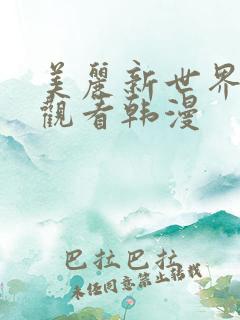 美麗新世界
觀看韩漫
巴拉巴拉
未经同意禁止转载